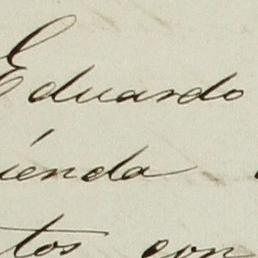 Eduardo
ienda
tos con